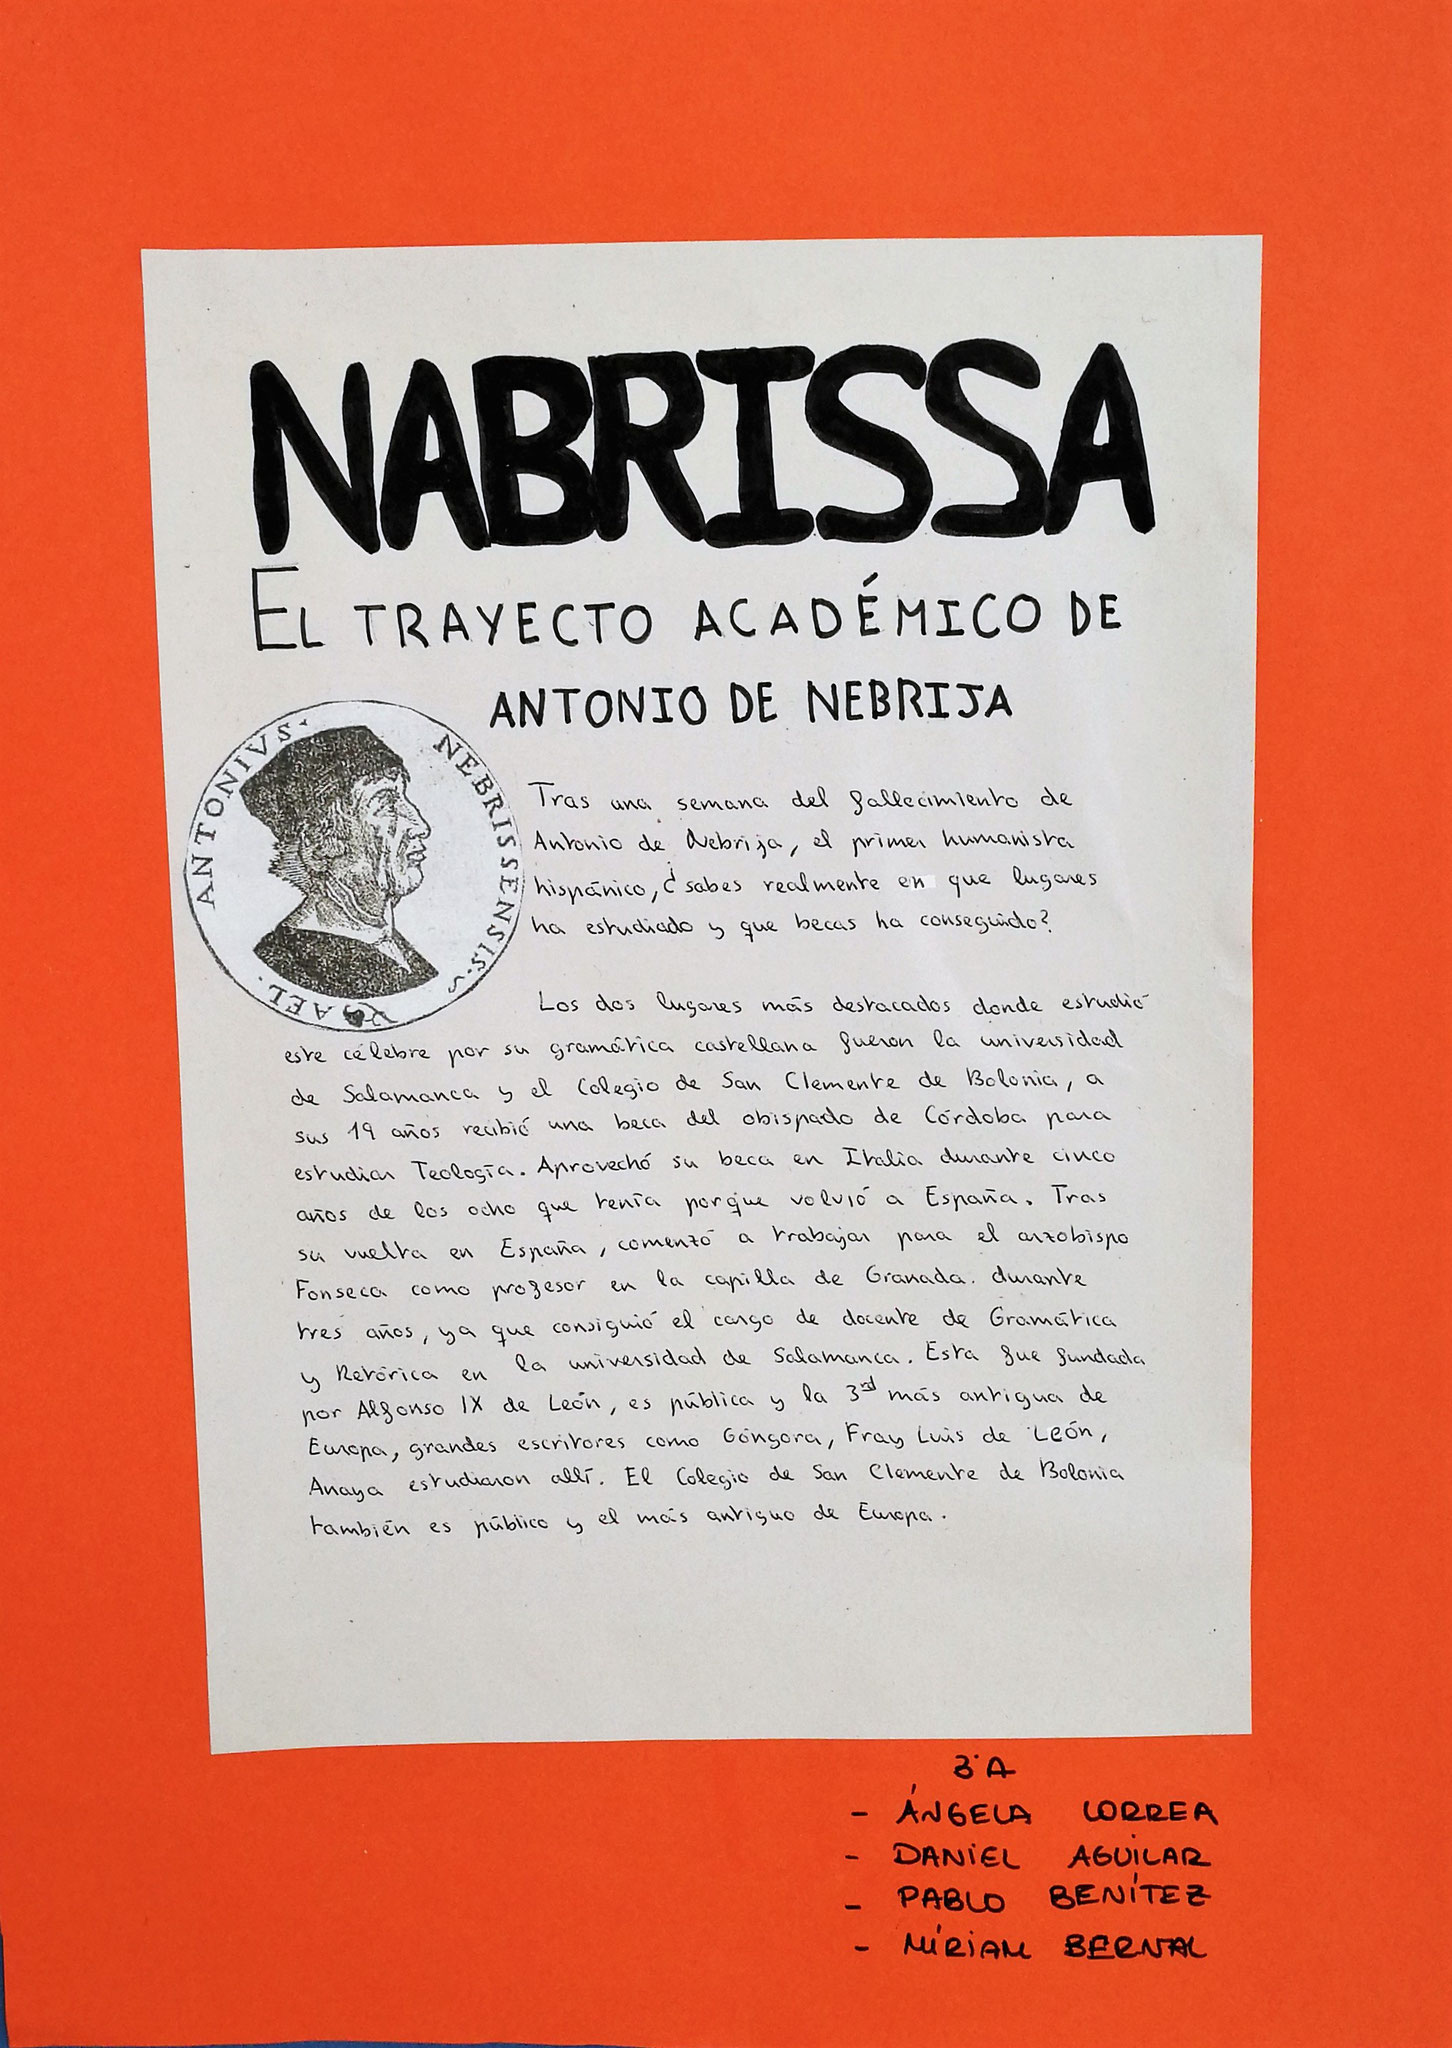 NABRISSA
EL TRAYECTO ACADÉMICO DE
ANTONIO DE NEBRIJA
ANTONIVS · NEBRISSENSIS ·
AEL ·
Tras una semana del fallecimiento de
Antonio de Nebrija, el primer humanista
hispánico, ¿sabes realmente en que lugares
ha estudiado y que becas ha conseguido?
Los dos lugares más destacados donde estudió
este célebre por su gramática castellana fueron la universidad
de Salamanca y el Colegio de San Clemente de Bolonia, a
sus 19 años recibió una beca del obispado de Córdoba para
estudiar Teología. Aprovechó su beca en Italia durante cinco
años de los ocho que tenía porque volvió a España. Tras
su vuelta en España, comenzó a trabajar para el arzobispo
Fonseca como profesor en la capilla de Granada. durante
tres años, ya que consiguió el cargo de docente de Gramática
y Retórica en la universidad de Salamanca. Esta fue fundada
por Alfonso IX de León, es pública y la 3rd más antigua de
Europa, grandes escritores como Góngora, Fray Luis de León,
Anaya estudiaron allí. El Colegio de San Clemente de Bolonia
también es público y el más antiguo de Europa.
3ºA
- ÁNGELA CORREA
- DANIEL AGUILAR
- PABLO BENÍTEZ
- MÍRIAM BERNAL